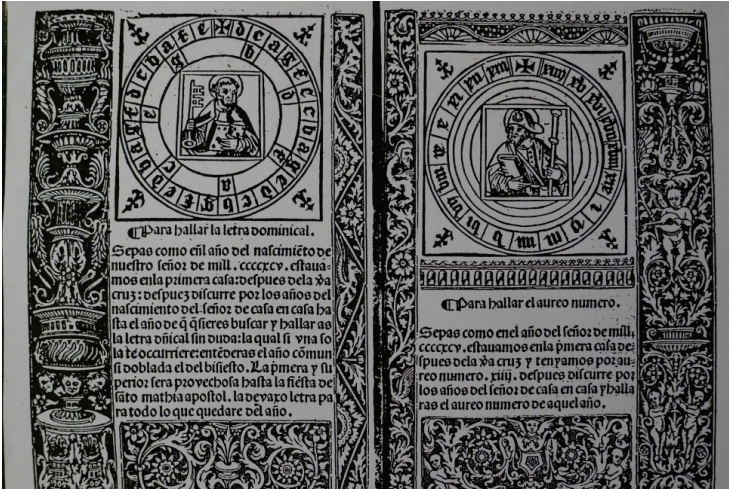 ¶Para hallar la letra dominical.
Sepas como eñl año del nascimiẽto de
nuestro señor de mill. ccccxcv. estaua-
mos enla primera casa: despues dela v̄a
cruz: despuez discurre por los años del
nascimiento del señor de casa en casa ha
sta el año de q̃ q̃sieres buscar y hallar as
la letra dñical sin duda: la qual si vna so
la te occurriere: entẽderas el año cõmun
si doblada el del bisiesto. La p̃mera y su
perior sera prouechosa hasta la fiesta de
sãto mathia apostol. la devaxo letra pa
ra todo lo que quedare del año.
¶Para hallar el aureo numero.
Sepas como enel año del señor de mill.
ccccxcv. estauamos enla p̃mera casa de-
spues dela v̄a cruz y tenyamos por au-
reo numero. xiiij. despues discurre por
los años del señor de casa en casa y halla
ras el aureo numero de aquel año.